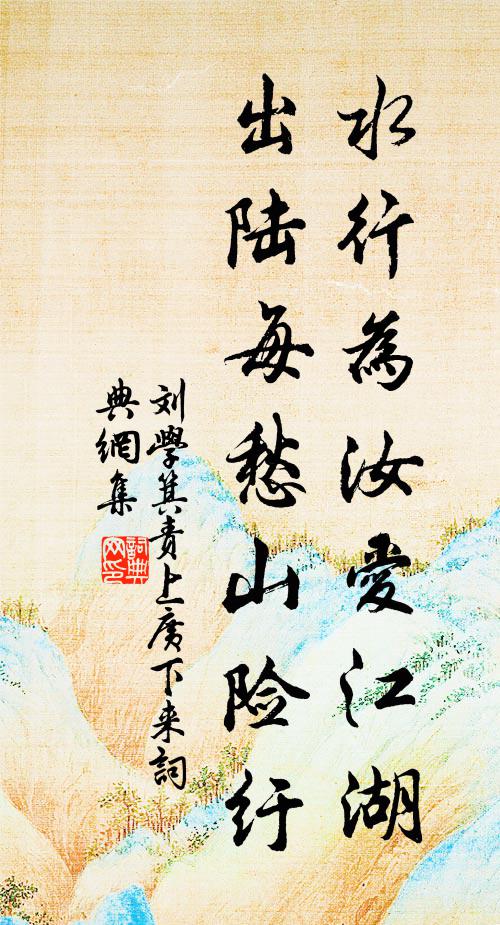 水行為汝愛江湖
出陆每愁山险纡
刘學箕责上廣下来詞
典網集
詞典
网印